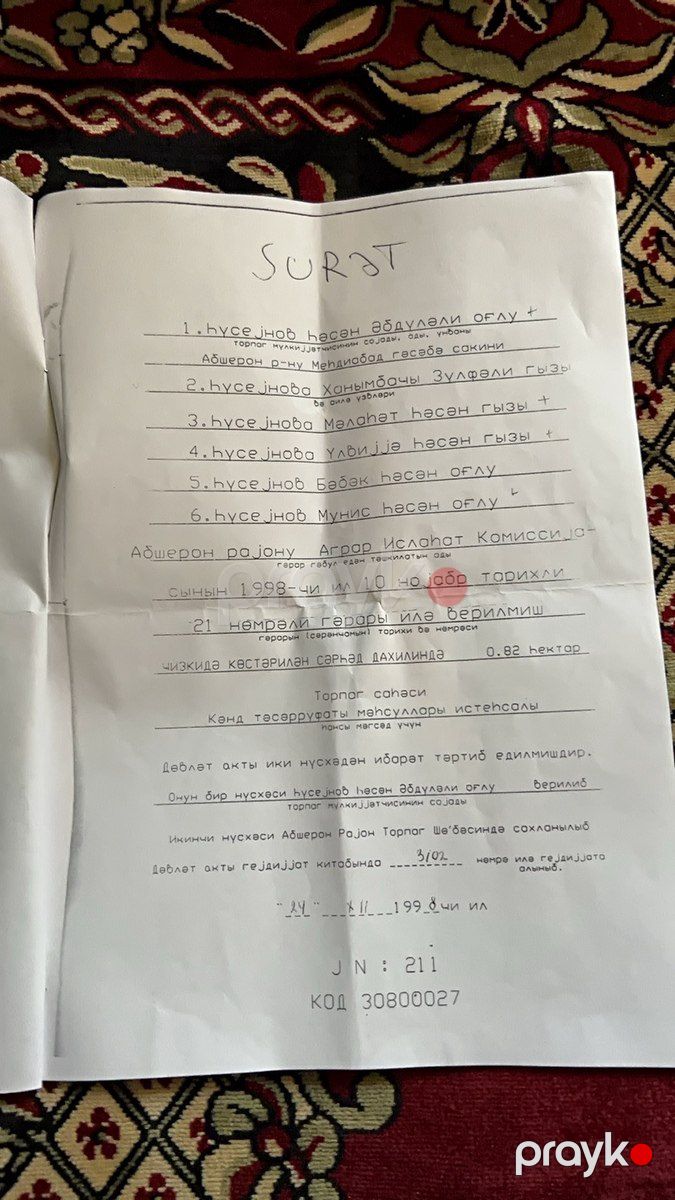 SURƏT
1. Һүсејнов Һәсән Әбдүләли оғлу +
торпаг мүлкијјәтчисинин сојады, ады, үнваны
Абшерон р-ну Меһдиабад гәсәбә сакини
2. Һүсејнова Ханымбачы Зүлфәли гызы
вә аилә үзвләри
3. Һүсејнова Мәлаһәт Һәсән гызы +
4. Һүсејнова Үлвијјә Һәсән гызы +
5. Һүсејнов Бәбәк Һәсән оғлу
6. Һүсејнов Мунис Һәсән оғлу
Абшерон рајону Аграр Ислаһат Комиссија-
гәрар гәбул едән тәшкилатын ады
сынын 1998-чи ил 10 нојабр тарихли
21 нөмрәли гәрары илә верилмиш
гәрарын (сәрәнчамын) тарихи вә нөмрәси
чизкидә көстәрилән сәрһәд дахилиндә 0.82 һектар
Торпаг саһәси
Кәнд тәсәррүфаты мәһсуллары истеһсалы
һансы мәгсәд үчүн
Дөвләт акты ики нүсхәдән ибарәт тәртиб едилмишдир.
Онун бир нүсхәси Һүсејнов Һәсән Әбдүләли оғлу верилиб
торпаг мүлкијјәтчисинин сојады
Икинчи нүсхәси Абшерон Рајон Торпаг Шө'бәсиндә сахланылыб
Дөвләт акты гејдијјат китабында 3102 нөмрә илә гејдијјата
алыныб.
"24" XII 1998 чи ил
JN : 211
КОД 30800027
prayko
prayk